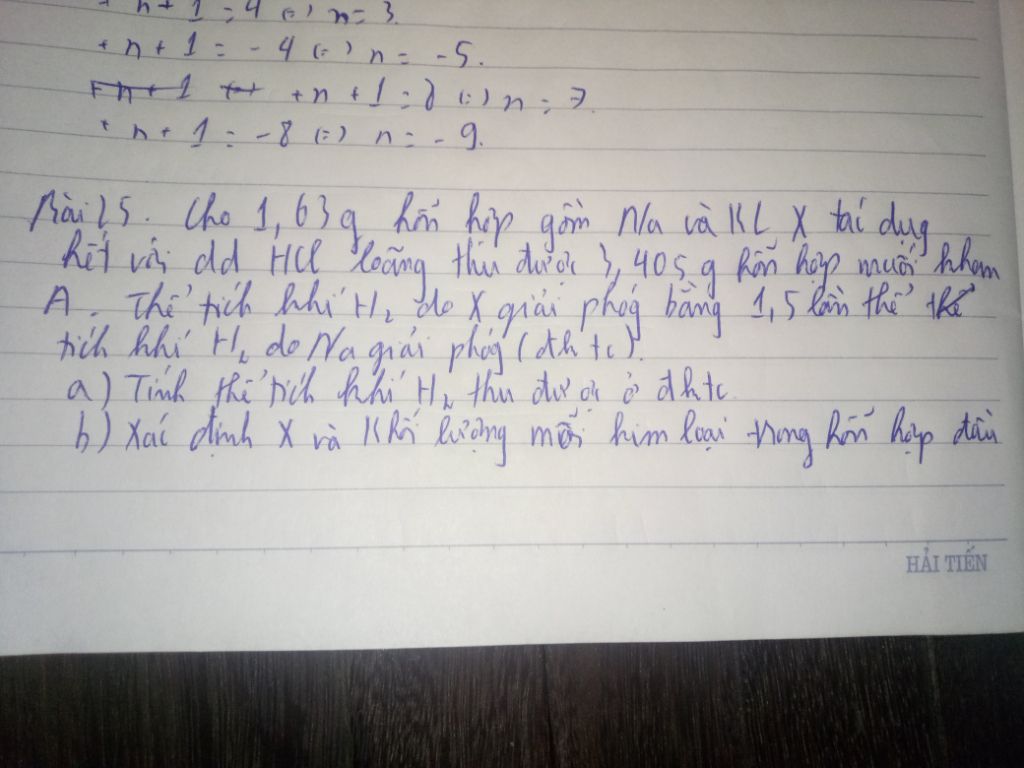 + n + 1 = 4 (=) n = 3.
+ n + 1 = - 4 (=) n = -5.
+ n + 1 + n + 1 = 8 (=) n = 7.
+ n + 1 = -8 (=) n = - 9.
Bài 25. Cho 1,63g hỗn hợp gồm Na và KL X tác dụg
hết với dd HCl loãng thu được 3,405 g hỗn hợp muối khan
A. Thể tích khí H2 do X giải phóg bằng 1,5 lần thể thể
tích khí H2 do Na giải phóg (đktc).
a) Tính thể tích khí H2 thu được ở đktc
b) Xác định X và Khối lượng mỗi kim loại trong hỗn hợp đầu
HẢI TIẾN